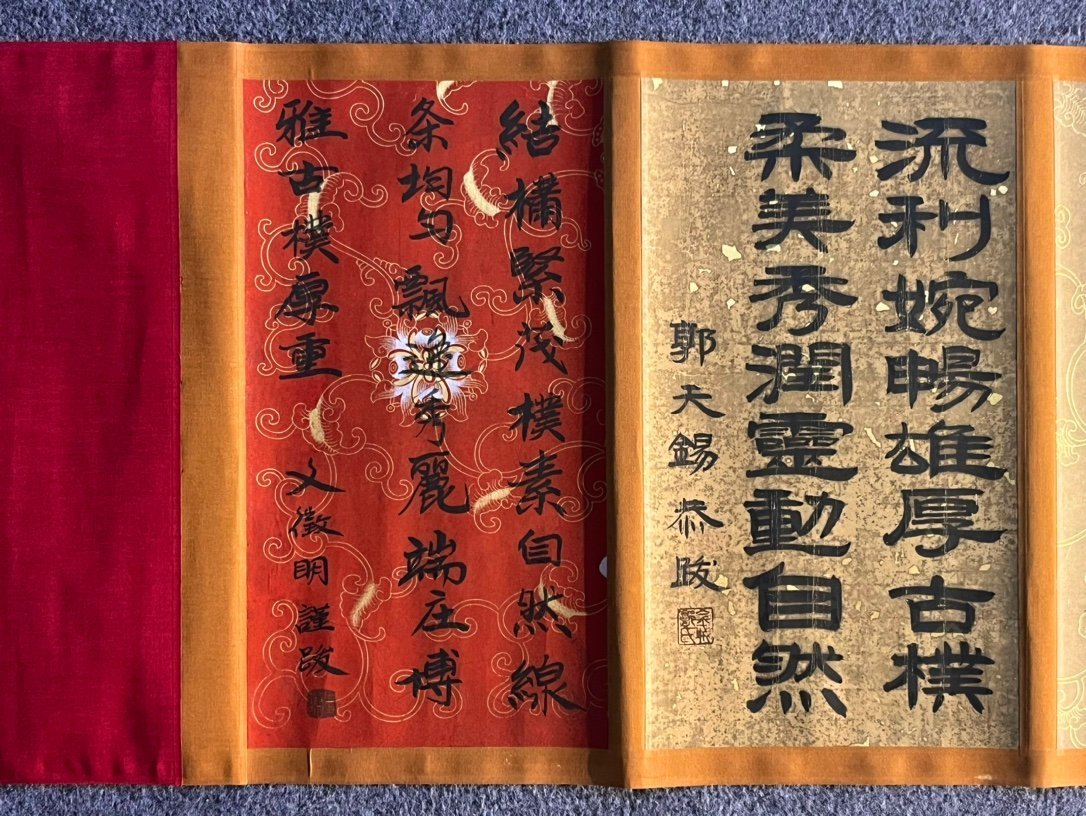 流利婉暢雄厚古樸
柔美秀潤靈動自然
郭天錫恭跋
結構緊茂樸素自然線
条均勻飄逸秀麗端庄博
雅古樸厚重
文徵明謹跋